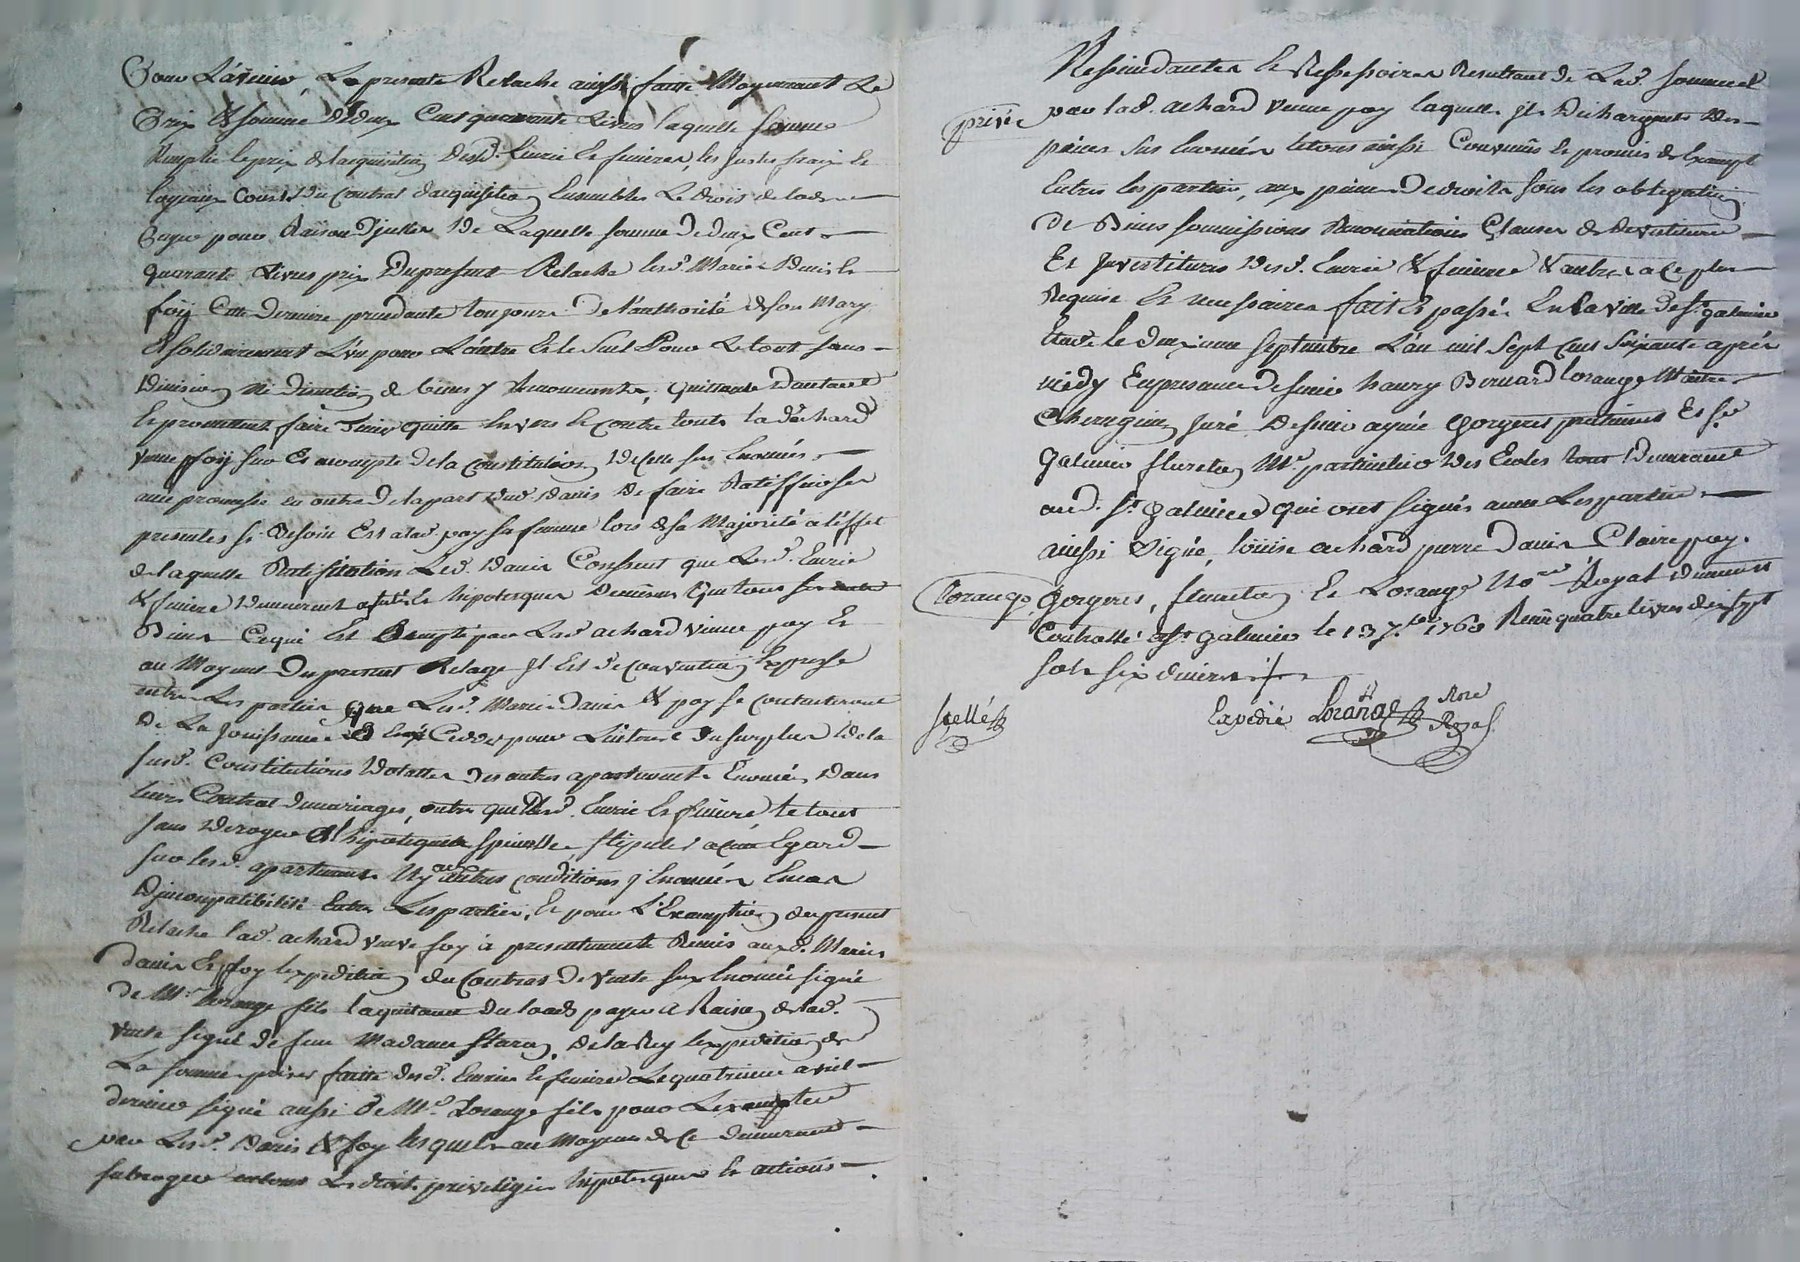 Pour L'avenir, La presente Relache ainsi faitte Moyennant Le
Prix & somme De deux Cens quarante Livres laquelle somme
Remplie le prix de lacquisition Desd. Eurie & finieres, les justes fraix Et
loyaux Cousts Du Contrat dacquisition Ensembles Le droit de lods
Payé pour Raison D'jcelles De Laquelle somme De deux Cent
quarante Livres prix Dupresent Relache lesd. Mariés Davis Et
foÿ Cette Derniere procedante toujours De l'authorité de son Mary
Et solidairement L'un pour L'autre Et le seul Pour Le tout sans
Division Ni Discution de biens y Renoncants, quittent D'autant
Et promettent faire Tenir quitte Envers Et contre touts la d. achard
veuve foÿ sur Et a compte de la Constitution De celle sus Enoncée
avec promesse en outre De la part Dud. Davis De faire Ratiffier ses
presentes si Besoin Est a lad. foy sa femme lors de sa Majorité a l'effet
de laquelle Ratification Led. Davis Consent que Lesd. Eurie
& finiere Demeurent affectés Et hipotesques Demesme que tous ses
Biens Ce qui Est accepté par Lad. achard veuve foy Et
au Moyens Du present Relage jl Est De Convention Expresse
entre Les parties que Lesd. Mariés Davis & foy se contanteront
De La Jouissance Ced. pour L'interest Du surplus De la
susd. Constitutions Dotalle Des autres apartements Enoncés Dans
leurs Contrat demariages, outre que lesd. Eurie Et finiere le tout
sans Deroger a l'hipoteque speciale stipulée a cet Egard
sur lesd. apartements Ny aux autres conditions y Enoncées En cas
Djncompatibilité Entre Les parties, Et pour L'Exemption du present
Relache lad. achard veuve foy à presentement Remis aux d. Mariés
Davis Et foy lexpedition du Contrat De vente sus Enoncé signé
De Me. Lorange fils la quittance Du lods payée a Raison de lad.
vente signé de feu Madame Staron De la Rey lexpedition de
La prises faitte desd. Eurie Et finieres Le quatrieme avril
dernier signé aussi De Me. Lorange fils pour Lexempter
par Lesd. Davis & foy lesquels au Moyens de Ce Demeurent
subrogés entous Les droits privileges hipotesques Et actions
Ressindantes Et Ressessoires Resultant De Lad. sommes
prisée par lad. achard veuve foy laquelle jls Dechargents Des
pieces sus Enoncés le tous ainsi Convenus Et promis de
Entres les parties, aux peines De droits sous les obligations
De Biens soumissions Renonciations Clauses De Devestiture
Et Jnvestitures Desd. Eurie & finiere & autres a ce plus
Requise Et necessaires fait Et passé En la ville de St. galmier
Etude le deuxieme septembre L'an mil sept cens soixante après
midy En presence de sieur henry Bernard lorange Maitre
Chirurgien juré De sieur aymé Gorgeres praticient Et sr.
galmier fleureton Me. particulier Des Ecoles Demeurant
aud. St. galmier qui ont signés avec Les parties
ainsi signée, Loüise achard pierre Davis Claire foy.
Lorange Gorgeres, fleureton Et Lorange Nore. Royal Demeurt
Controllé a St. galmier le 13 7.bre 1760 Reçu quatre livres dix sept
sols six deniers
Scellé
Expedié Lorange Nore
Royal